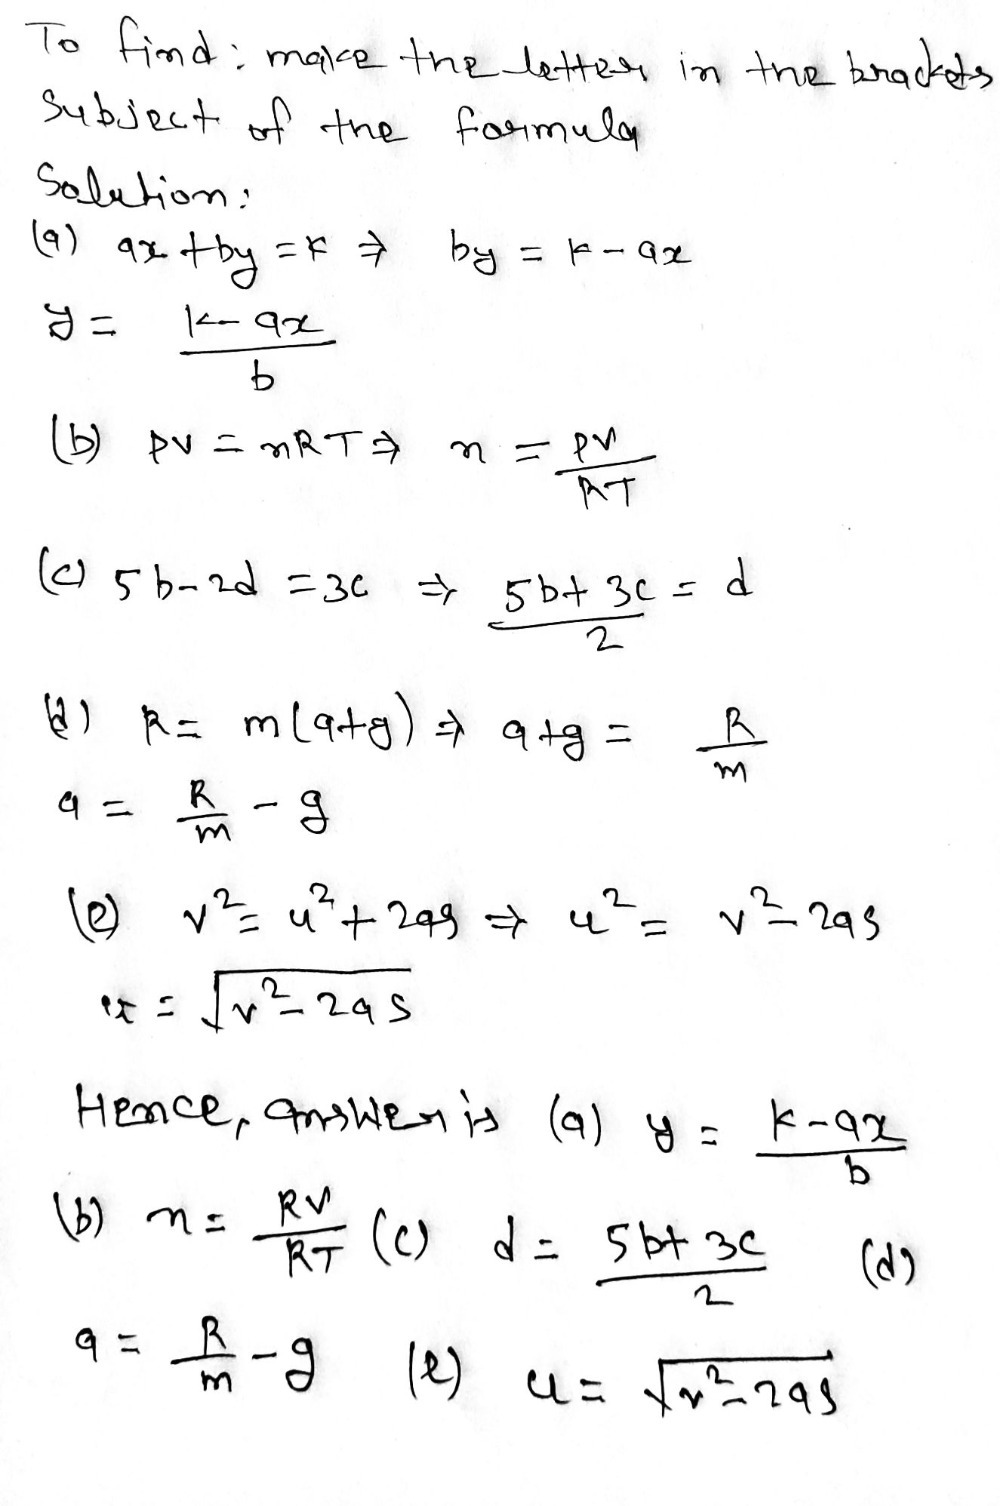 To find: make the letter in the brackets
Subject of the formula
Solution:
(a) ax + by = k ⇒ by = k - ax
y = \frac{k - ax}{b}
(b) PV = nRT ⇒ n = \frac{PV}{RT}
(c) 5b - 2d = 3c ⇒ \frac{5b + 3c}{2} = d
(d) R = m(a+g) ⇒ a+g = \frac{R}{m}
a = \frac{R}{m} - g
(e) v² = u² + 2as ⇒ u² = v² - 2as
u = \sqrt{v² - 2as}
Hence, answer is (a) y = \frac{k - ax}{b}
(b) n = \frac{RV}{RT} (c) d = \frac{5b + 3c}{2} (d)
a = \frac{R}{m} - g (e) u = \sqrt{v² - 2as}